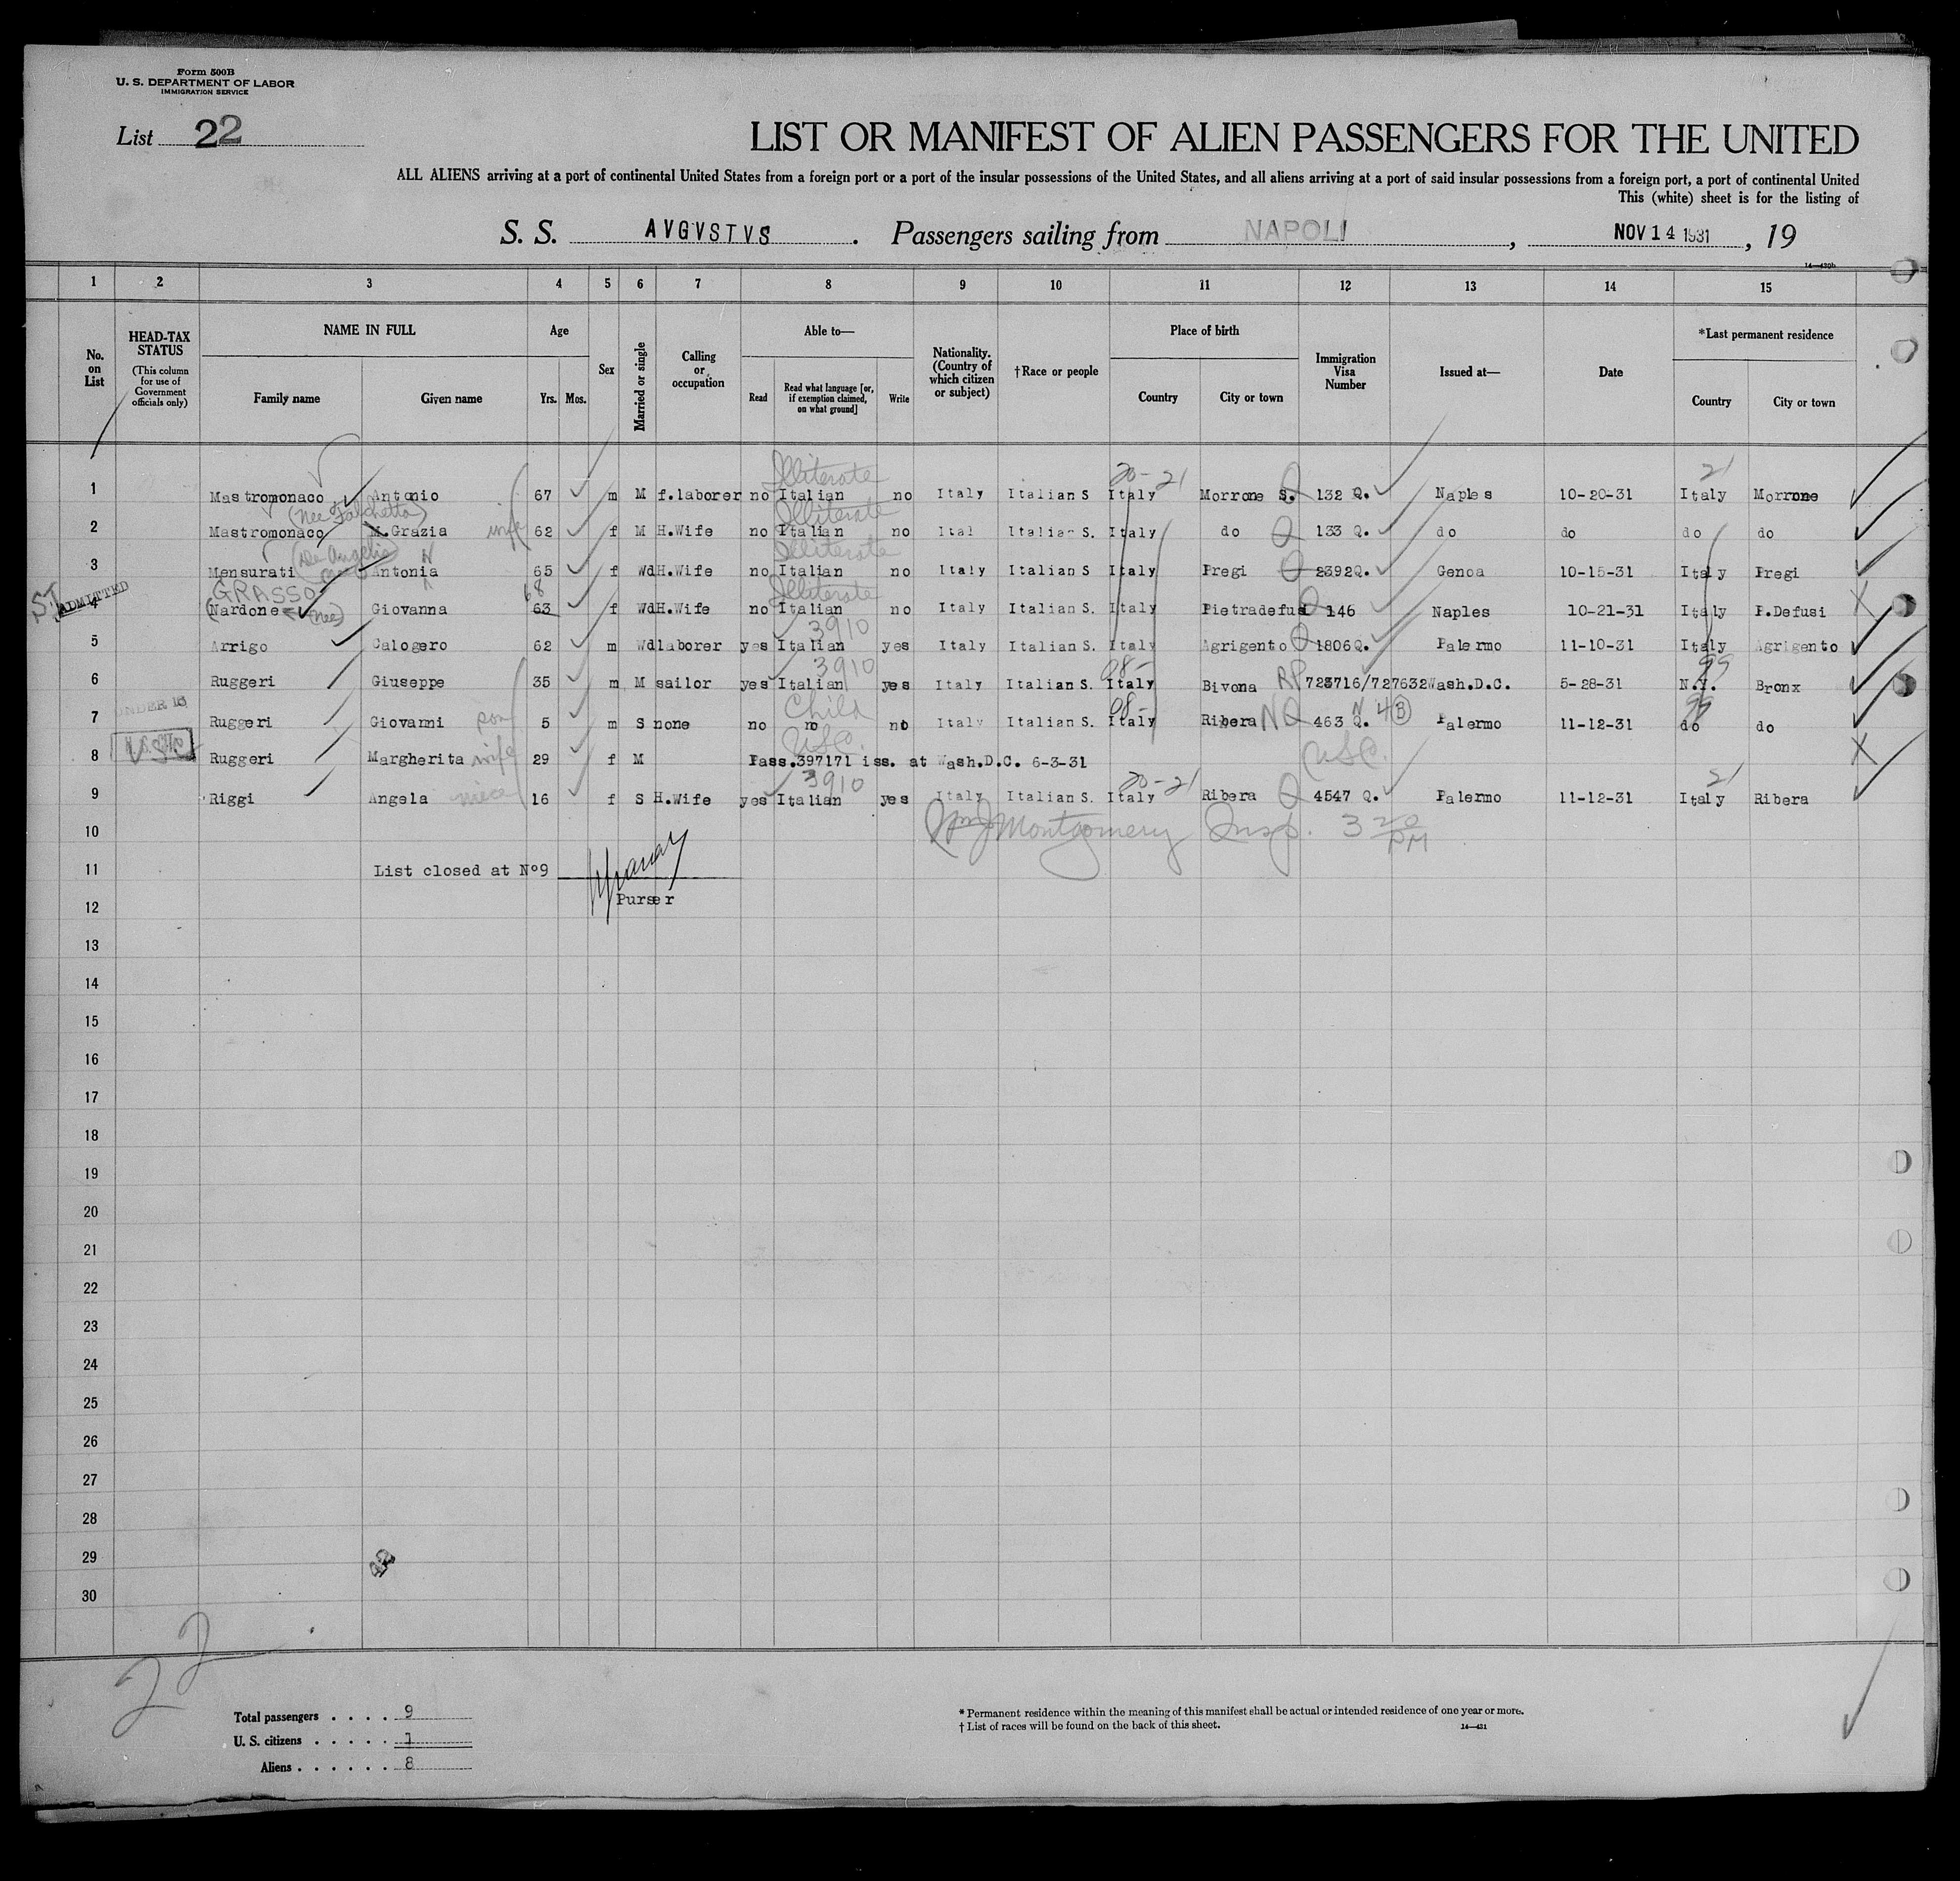 Form 500B
U. S. DEPARTMENT OF LABOR
IMMIGRATION SERVICE
List 22
LIST OR MANIFEST OF ALIEN PASSENGERS FOR THE UNITED
ALL ALIENS arriving at a port of continental United States from a foreign port or a port of the insular possessions of the United States, and all aliens arriving at a port of said insular possessions from a foreign port, a port of continental United
This (white) sheet is for the listing of
S. S. AVGVSTVS . Passengers sailing from NAPOLI , NOV 14 1931 , 19
14—420b
1 2 3 4 5 6 7 8 9 10 11 12 13 14 15
No. on List
HEAD-TAX STATUS (This column for use of Government officials only)
NAME IN FULL
Family name Given name
Age
Yrs. Mos.
Sex
Married or single
Calling or occupation
Able to—
Read Read what language [or, if exemption claimed, on what ground] Write
Nationality. (Country of which citizen or subject)
†Race or people
Place of birth
Country City or town
Immigration Visa Number
Issued at—
Date
*Last permanent residence
Country City or town
Illiterate 20-21 21
1 Mastromonaco Antonio 67 m M f.laborer no Italian no Italy Italian S Italy Morrone S. Q 132 Q. Naples 10-20-31 Italy Morrone
(nee Falchetta) Illiterate
2 Mastromonaco M.Grazia wife 62 f M H.Wife no Italian no Ital Italian S. Italy do Q 133 Q. do do do do
(De Angelis) Illiterate
3 Mensurati Antonia 65 f Wd H.Wife no Italian no Italy Italian S Italy Pregi Q 2392Q. Genoa 10-15-31 Italy Pregi
GRASSO 68 Illiterate
S.I. ADMITTED
4 (Nardone (nee) Giovanna 63 f Wd H.Wife no Italian no Italy Italian S. Italy Pietradefus Q 146 Naples 10-21-31 Italy P.Defusi
3910
5 Arrigo Calogero 62 m Wd laborer yes Italian yes Italy Italian S. Italy Agrigento Q 1806Q. Palermo 11-10-31 Italy Agrigento
3910 08- 99
6 Ruggeri Giuseppe 35 m M sailor yes Italian yes Italy Italian S. Italy Bivona RP 723716/727632 Wash.D.C. 5-28-31 N.Y. Bronx
UNDER 16 Child 08- 99
7 Ruggeri Giovanni son 5 m S none no no no Italy Italian S. Italy Ribera NQ 463 Q. N 4 B Palermo 11-12-31 do do
U.S.C. USC. USC.
8 Ruggeri Margherita wife 29 f M Pass.397171 iss. at Wash.D.C. 6-3-31
3910 20-21 21
9 Riggi Angela niece 16 f S H.Wife yes Italian yes Italy Italian S. Italy Ribera Q 4547 Q. Palermo 11-12-31 Italy Ribera
10 Wm J Montgomery Insp. 3 20 PM
11 List closed at Nº9
12 Purser
13
14
15
16
17
18
19
20
21
22
23
24
25
26
27
28
29
30
22
Total passengers . . . . 9
U. S. citizens . . . . . 1
Aliens . . . . . . 8
* Permanent residence within the meaning of this manifest shall be actual or intended residence of one year or more.
† List of races will be found on the back of this sheet.
14—421